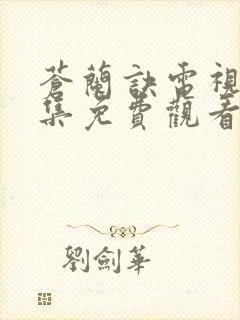 蒼蘭訣電視
集免費觀看
劉劍華